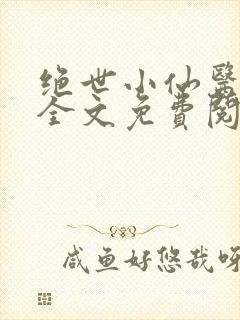 绝世小仙醫
全文免費閱
咸鱼好悠哉呀